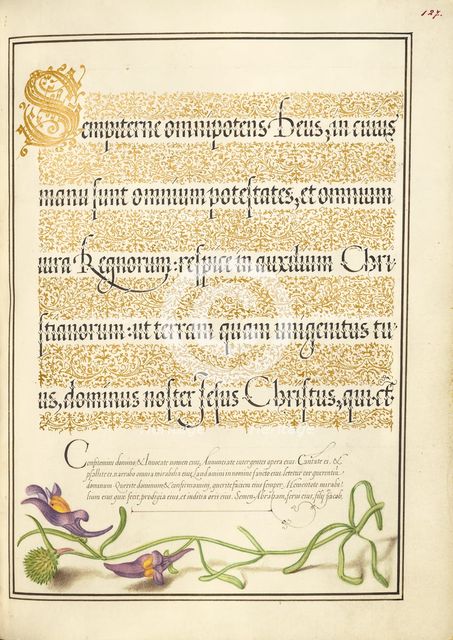 127.
Sempiterne omnipotens Deus, in cuius
manu sunt omnium potestates, et omnium
iura Regnorum: respice in auxilium Chri
stianorum: ut terram quam unigenitus tu
us, dominus noster Jesus Christus, qui est
Confitemini domino, & Invocate nomen eius, Annunciate inter gentes opera eius Cantate ei, &
psallite ei, narrate omnia mirabilia eius, Laudamini in nomine sancto eius letetur cor querentiū
dominum Querite dominum, & confirmamini, querite faciem eius semper, Mementote mirabi-
lium eius que fecit, prodigia eius, et iudicia oris eius. Semen Abraham, servi eius, filij Jacob,